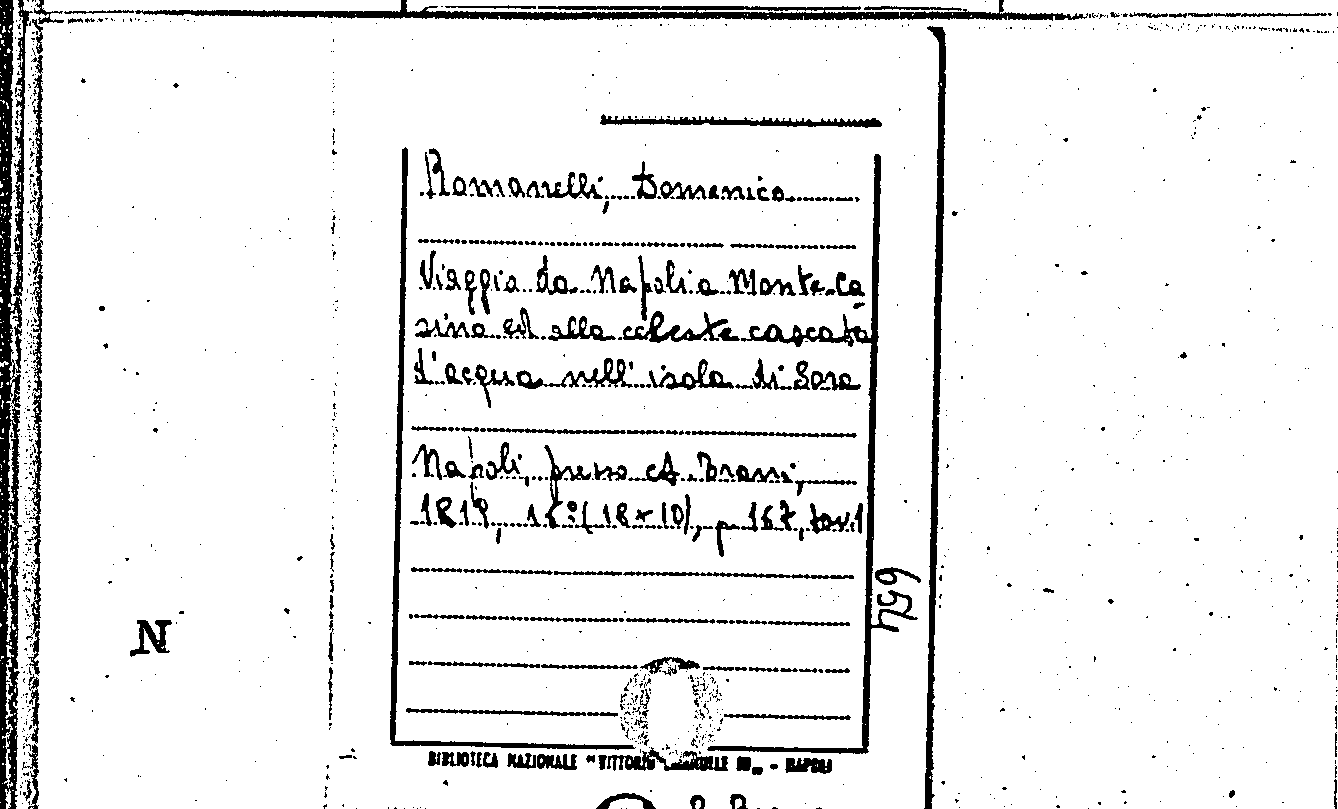 Romanelli, Domenico
Viaggio da Napoli a Monte-Ca
sino ed alla celeste cascata
d'acqua nell'isola di Sora
Napoli, presso A. Trani,
1819, 16º (18 x 10), p 167, tav. 1
654
N
BIBLIOTECA NAZIONALE "VITTORIO EMANUELE III„ - NAPOLI